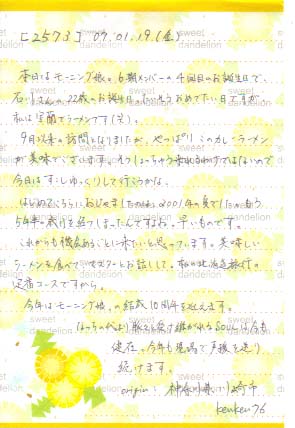 [2573] 07.01.19(金)
本日はモーニング娘。6期メンバーの4回目のお誕生日で、
石川さんの22歳のお誕生日。たいそうおめでたい日ですが
私は室蘭でラーメンです(笑)。
9月以来の訪問となりましたが、やっぱりここのカレーラーメン
が美味しゅうございます。そうしょっちゅう来れるわけではないので
今日はすこしゆっくりして行こうかな。
はじめてこちらにおじゃましたのは2001年の夏でしたから
5年半の歳月を経てしまったんですねぇ。早いものです。
これからも機会あるごとに来たいと思っています。美味しい
ラーメンを食べてマスターとお話しして、私の北海道旅行の
定番コースですから。
今年はモーニング娘。の結成10周年を迎えます。
初代より脈々と受け継がれるSoulは今も
健在。今年も現場で声援を送り
続けます。
origin: 神奈川県川崎市
kenken76
sweet dandelion